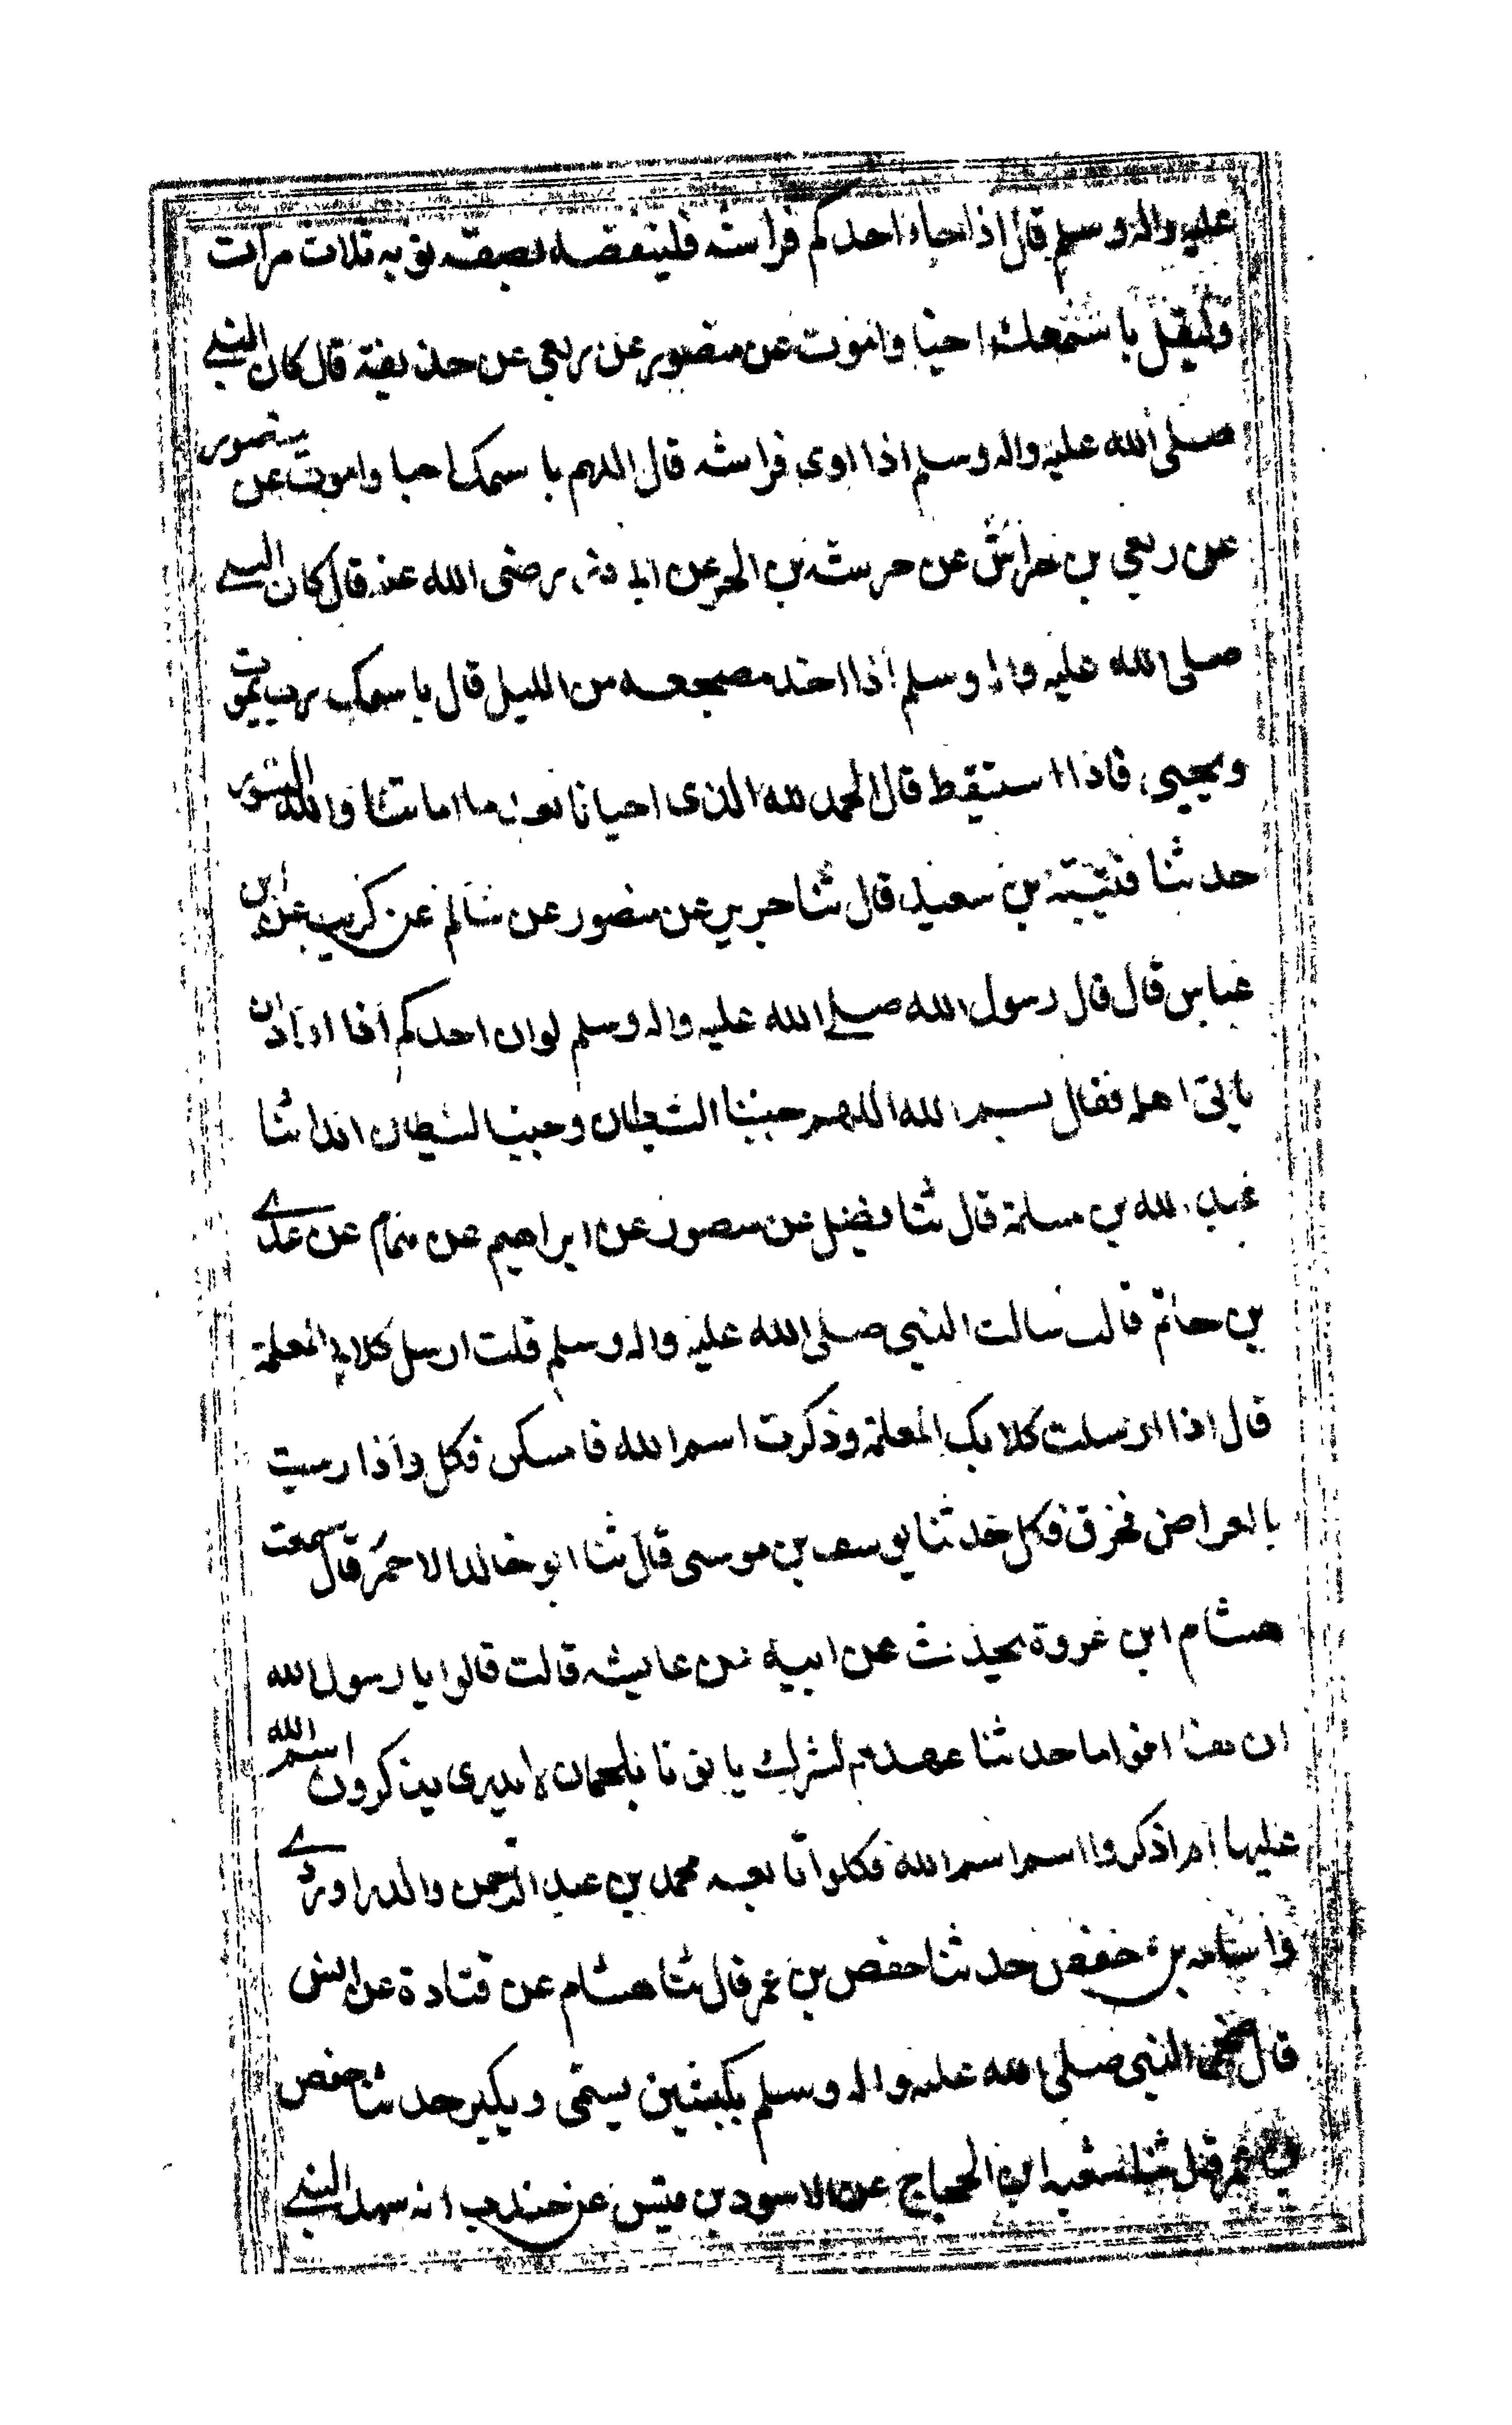 عليه واله وسلم قال اذا جاء احدكم فراشه فلينفضه بصنفه ثوبه ثلاث مرات
وليقل باسمك احيا واموت عن منصور عن ربعي عن حذيفة قال كان النبي
صلى الله عليه واله وسلم اذا اوى فراشه قال اللهم باسمك احيا واموت عن منصور
عن ربعي بن خراش عن خرشه بن الحر عن ابي ذر رضى الله عنه قال كان النبي
صلى الله عليه واله وسلم اذا اخذ مضجعه من الليل قال باسمك نموت
ونحيي فاذا استيقظ قال الحمد لله الذى احيانا بعد ما اماتنا واليه النشور
حدثنا قتيبة بن سعيد قال ثنا جرير عن منصور عن سالم عن كريب عن ابن
عباس قال قال رسول الله صلى الله عليه واله وسلم لو ان احدكم اذا اراد ان
ياتى اهله فقال بسم الله اللهم جنبنا الشيطان وجنب الشيطان ثنا
عبد الله بن مسلمة قال ثنا فضيل عن منصور عن ابراهيم عن همام عن عدي
بن حاتم قال سالت النبي صلى الله عليه واله وسلم قلت ارسل كلابي المعلمة
قال اذا ارسلت كلابك المعلمة وذكرت اسم الله فامسكن فكل واذا رميت
بالمعراض فخزق فكل حدثنا يوسف بن موسى قال ثنا ابو خالد الاحمر قال سمعت
هشام ابن عروة يحدث عن ابيه عن عايشه قالت قالوا يا رسول الله
ان هنا اقواما حدثنا عهدهم لشرك ياتونا بلحمان لا يدرى يذكرون اسم الله
عليها ام اذكروا اسم اسم الله فكلوا تابعه محمد بن عبد الرحمن والدراوردي
واسامه بن حفص حدثنا حفص بن عمر قال ثنا هشام عن قتادة عن انس
قال ضحى النبي صلى الله عليه واله وسلم بكبشين يسمى ويكبر حدثنا حفص
بن عمر قال ثنا شعبه ابن الحجاج عن الاسود بن قيس عن جندب انه شهد النبي